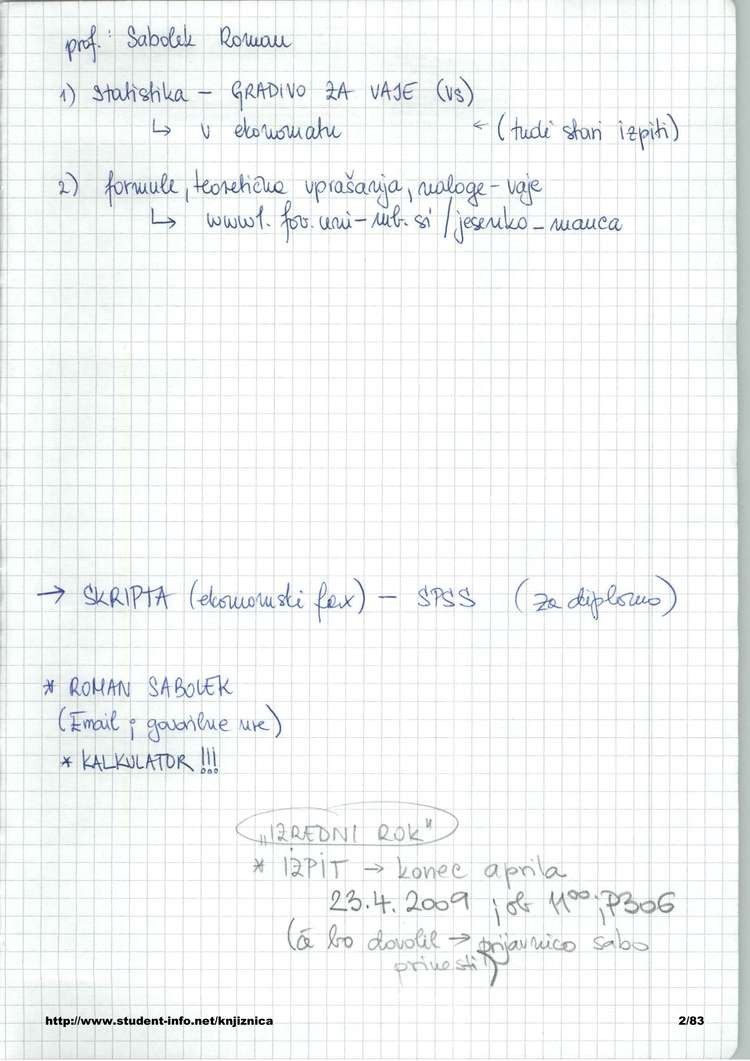 prof.: Sabolek Roman
1) Statistika – GRADIVO ZA VAJE (VS)
↳ v ekonomatu ← (tudi stari izpiti)
2) formule, teoretična vprašanja, naloge – vaje
↳ www1.fov.uni-mb.si/jesenko_manca
→ SKRIPTA (ekonomski fax) – SPSS (za diplomo)
* ROMAN SABOLEK
(Email ; govorilne ure)
* KALKULATOR !!!
„IZREDNI ROK"
* IZPIT → konec aprila
23.4.2009 ; ob 11⁰⁰ ; P306
(če bo dovolil → prijavnico sabo
prinesti)
http://www.student-info.net/knjiznica 2/83